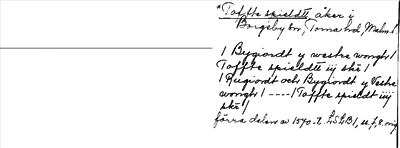 *Toffte spieldtt, åker i
Borgeby sn, Torna hd, Malm. l.
/ Bygiordt y westre wongh /
Toffte spieldtt iij skr /
/ Rugiordt och Bygiordt y Vestre
wongh / ---- / Toffte spieldt iiij
skr /
förra delen av 1570-t. LSLB 1, u. f. 8. orig